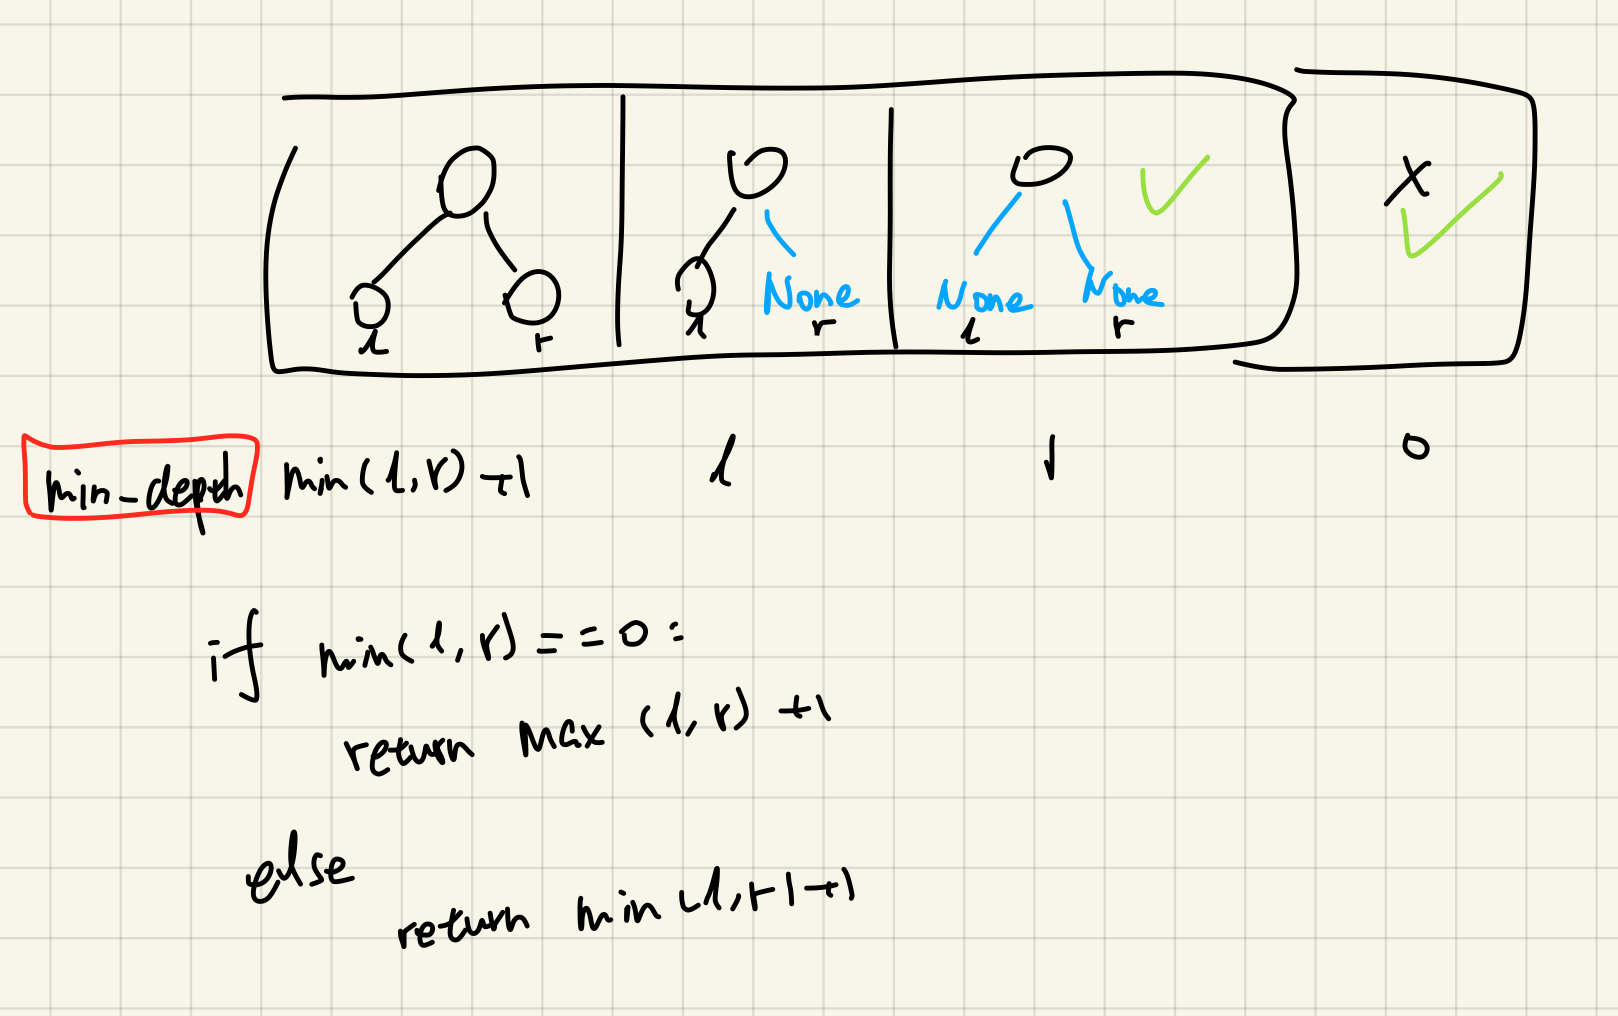 None None None
l r l r l r
min_depth min(l,r)+1 l 1 0
if min(l,r)==0:
return max(l,r)+1
else
return min(l,r)+1